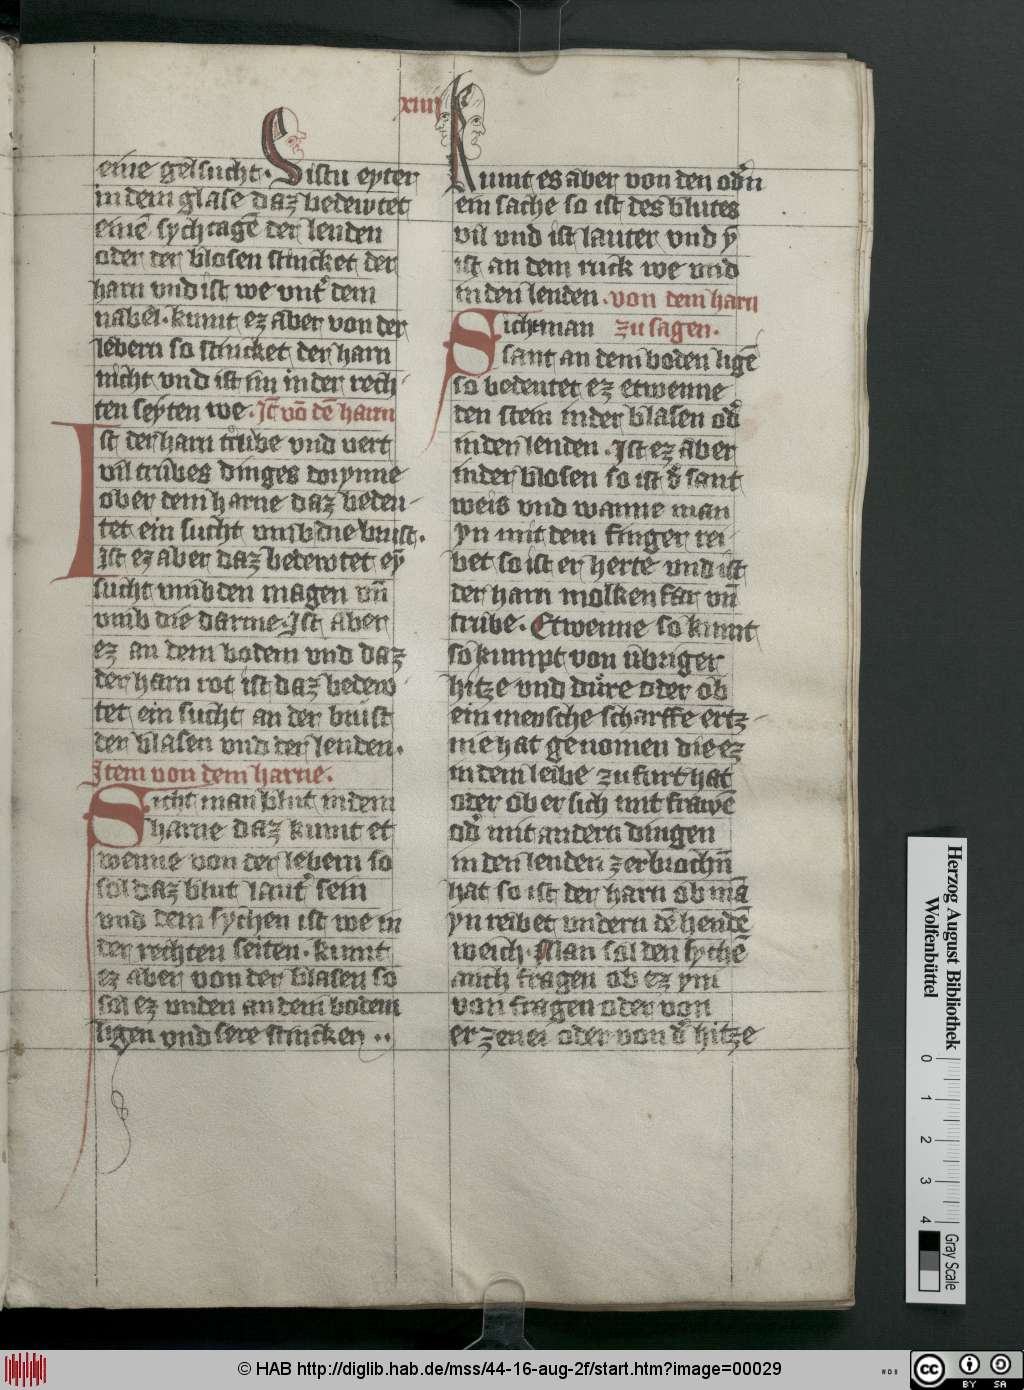 xiiij
eine gelsucht. Sistu eyter
in dem glase daz bedewtet
einē sychtagē der lenden
oder der blosen stincket der
harn vnd ist we vnt' dem
nabel. kumt ez aber von der
lebern so stincket der harn
nicht vnd ist im in der rech
ten seyten we. Jt vō dē harn
Ist der harn trůbe vnd vert
vil trubes dinges dorynne
ober dem harne daz beden
tet ein sucht vmb die brust.
Ist ez aber daz bedewtet ey
sucht vmb den magen vn̄
vmb die darme. Ist aber
ez an dem bodem vnd daz
der harn rot ist daz bedew
tet ein sucht an der brust
der blasen vnd der lenden.
Item von dem harne.
Sicht man blut in dem
harne daz kumt et
wenne von der lebern so
sol daz blut laut' sein
vnd dem sychen ist we in
der rechten seiten. kumt
ez aber von der blasen so
sol ez vnden an dem bodem
ligen vnd sere stincken..
Kumt es aber von den odn
ein sache so ist des blutes
vil vnd ist lauter vnd ȳ
ist an dem ruck we vnd
in den lenden. von dem harn
Sicht man zu sagen.
sant an dem boden ligē
so bedeutet ez etwenne
den stein in der blasen od'
in den lenden. Ist ez aber
in der blosen so ist d' sant
weis vnd wanne man
yn mit dem finger rei
bet so ist er herte vnd ist
der harn molkenfar vn̄
trube. Etwenne so kumt
so kumpt von ubriger
hitze vnd dürre oder ob
ein mensche scharffe ertz
nie hat genomen die ez
in dem leibe zufurt hat
oder ob er sich mit frawē
od' mit andern dingen
in den lenden zerbrochn̄
hat so ist der harn ob mā
yn reibet vndern dē hendē
weich. Man sol den sychē
auch fragen ob ez ym
von fragen oder von
erzenei oder von d' hitze
Herzog August Bibliothek
Wolfenbüttel
0 1 2 3 4
Gray Scale
© HAB http://diglib.hab.de/mss/44-16-aug-2f/start.htm?image=00029
cc BY SA